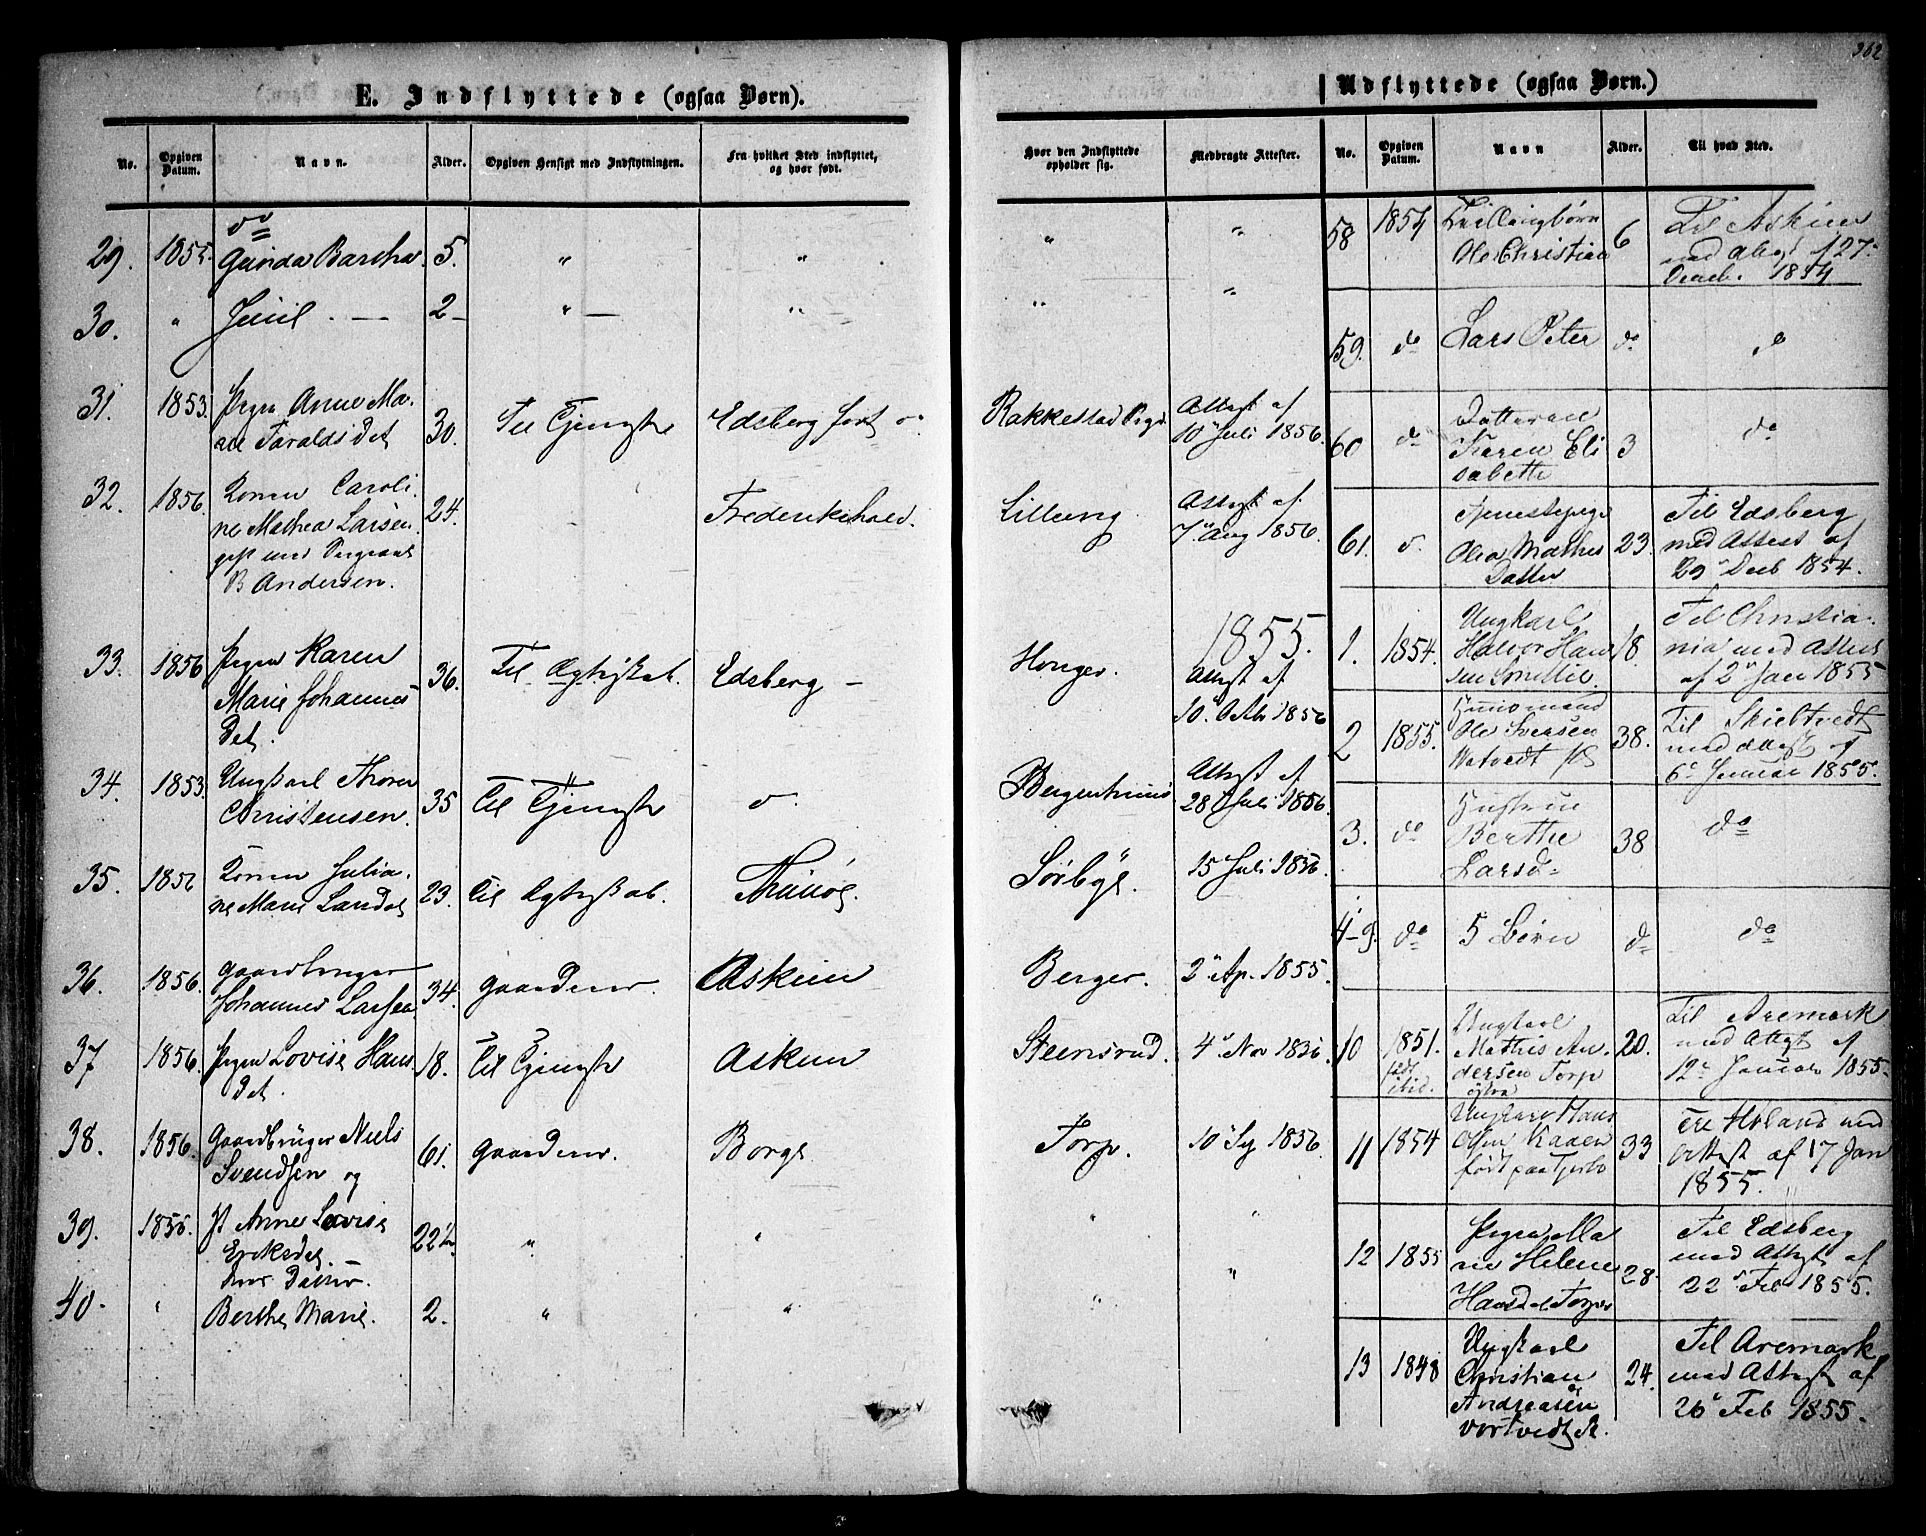 362
E. Indflyttede (ogsaa Børn).
No.
Opgiven Datum.
Navn.
Alder.
Opgiven Hensigt med Indflytningen.
Fra hvilket Sted indflyttet, og hvor født.
Hvor den Indflyttede opholder sig.
Medbragte Attester.
29. 1855. do Gunda Bartha. 5. " " " "
30. " Juul. — 2 — " — " " "
31. 1853. Pigen Anne Ma-
rie Taralds Det 30. Til Tjeneste Edsberg født do Rakkestad Prgd. Attest af
10 Juli 1856.
32. 1856. Konen Caroli-
ne Mathea Larsen 24. Frederikshald. Lilleeng Attest af
7 Aug 1856.
gift med
B Andersen.
1855.
33. 1856 Pigen Karen 36. Til Ægteskab. Edsberg — Honger. Attest af
Marie Johannes 10. Octbr 1856
Det.
34. 1853. Ungkarl Thorer
Christensen. 35 Til Tjeneste d. Bergenhuus Attest af
28 Juli 1856.
35. 1856 Konen Julia-
ne Marie Landet 23. Til Ægteskab. Thunø. Sørbye. 15 Juli 1856.
36. 1856. Gaardbruger
Johannes Larsen 34. Gaarden. Askim Berger. 2 Ap. 1855.
37 1856. Pigen Lovise Hans
Det. 18. Til Tjeneste Askim Steensrud. 4 Nov 1856
38. 1856. Gaardbruger Niels
Svendsen og 61. Gaarden. Borge Torp. 10 1856
39. 1856. Anne Lovise
Eriksdet. 22½ " " " "
hans Datter.
40. " Berthe Marie. 2. " " " "
Udflyttede (ogsaa Børn.)
No.
Opgiven Datum.
Navn
Alder.
Til hvad Sted.
58 1854 Tvillingbørn
Ole Christian 6 Til Askim
med Attest af 27
Decemb. 1854
59. do Lars Peter do do
60 do Datteren
Karen Eli
sabethe 3 do
61. d. Tjenestepige
Olea Mathis
Datter 23. Til Edsberg
med Attest af
29 Decb 1854.
1. 1854. Ungkarl
Halvor Han
sen Smedlie. 18 Til Christia-
nia med Attest
af 2 Jan 1855
2 1855. Huusmand
Ole Iversen
Natvedt 38. Til Skiebtvedt
med Attest af
6 Januar 1855.
3. do Hustrue
Berthe
Larsd 38 do
4-9. do 5 Børn do do
10 1851. født ibid. Ungkarl
Mathis An-
dersen Torp
østre 20. Til Aremark
med Attest af
12 Januar 1855.
11 1854 Ungkarl Hans
Olsen Kaaen
født paa Tjerbo 33 Til Høland med
Attest af 17 Jan
1855.
12 1855 Pigen Ma
rie Helene
Hansdet Torper 28. Til Edsberg
med Attest af
22 Feb 1855.
13 1848 Ungkarl
Christian
Andreasen
Vortvedt 24. Til Aremark
med Attest af
26 Feb 1855.